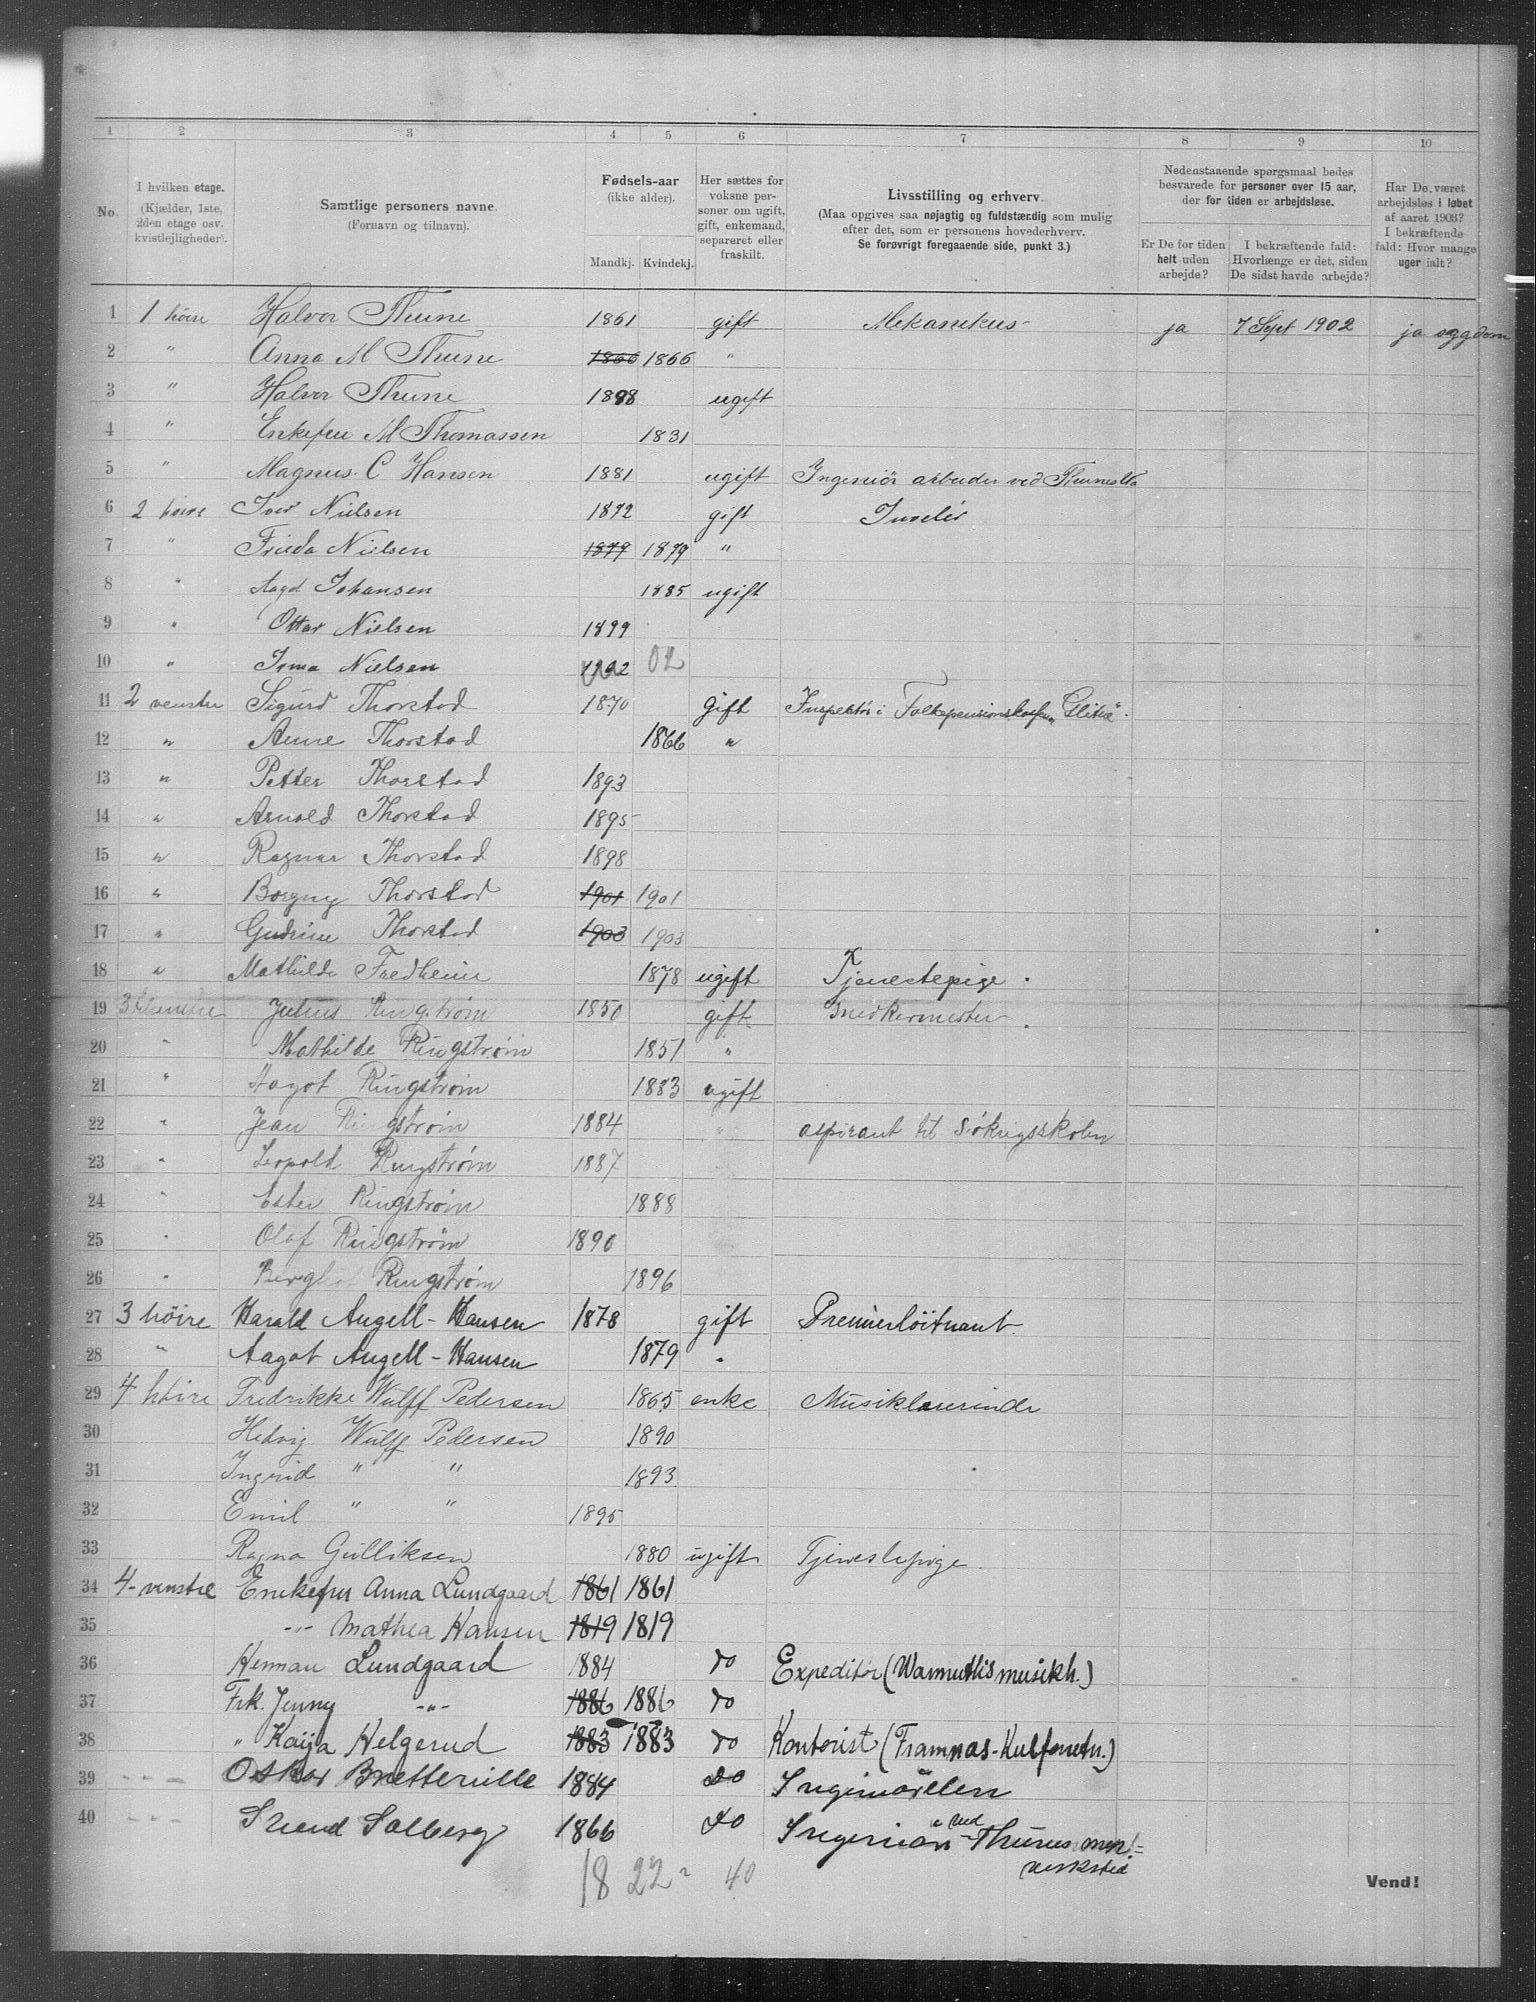 1 2 3 4 5 6 7 8 9 10
No.
I hvilken etage.
(Kjælder, 1ste,
2den etage osv.
kvistlejligheder).
Samtlige personers navne.
(Fornavn og tilnavn).
Fødsels-aar
(ikke alder).
Mandkj. Kvindekj.
Her sættes for
voksne per-
soner om ugift,
gift, enkemand,
separeret eller
fraskilt.
Livsstilling og erhverv.
(Maa opgives saa nøjagtig og fuldstændig som mulig
efter det, som er personens hovederhverv.
Se forøvrigt foregaaende side, punkt 3.)
Nedenstaaende spørgsmaal bedes
besvarede for personer over 15 aar,
der for tiden er arbejdsløse.
Er De for tiden
helt uden
arbejde?
I bekræftende fald:
Hvorlænge er det, siden
De sidst havde arbejde?
Har De været
arbejdsløs i løbet
af aaret 1903?
I bekræftende
fald: Hvor mange
uger ialt?
1 1 høire Halvor Thune 1861 gift Mekanikus ja 7 Sept 1902 ja
2 " Anna M Thune 1866 1866 "
3 " Halvor Thune 1898 ugift
4 " Enkefru M Thomassen 1831
5 " Magnus C Hansen 1881 ugift Ingeniør arbeider ved
6 2 høire Iver Nielsen 1872 gift Juvelér
7 " Frieda Nielsen 1879 1879 "
8 " Aagot Johansen 1885 ugift
9 " Ottar Nielsen 1899
10 " Irma Nielsen 1902 02
11 2 venstre Sigurd Thorstad 1870 Gift Inspektør i Folkepensionskassen "Glitne".
12 " Anne Thorstad 1866 "
13 " Petter Thorstad 1893
14 " Arnold Thorstad 1895
15 " Ragnar Thorstad 1898
16 " Borgny Thorstad 1901 1901
17 " Gudrun Thorstad 1903 1903
18 " Mathilde Fredheim 1878 ugift Tjenestepige.
19 3 venstre Julius Ringstrøm 1850 gift Snedkermester.
20 " Mathilde Ringstrøm 1851 "
21 " Aagot Ringstrøm 1883 ugift
22 " Jean Ringstrøm 1884 " aspirant til Søkrigsskolen
23 " Leopold Ringstrøm 1887
24 " Ester Ringstrøm 1888
25 " Olaf Ringstrøm 1890
26 " Bergliot Ringstrøm 1896
27 3 høire Harald Angell-Hansen 1878 gift Premierløitnant.
28 " Aagot Angell-Hansen 1879 "
29 4 høire Fredrikke Wulff Pedersen 1865 enke Musiklærerinde
30 Hedvig Wulff Pedersen 1890
31 Ingrid " " 1893
32 Emil " " 1895
33 Ragna Gulliksen 1880 ugift Tjenestepige
34 4-venstre Enkefru Anna Lundgaard 1861 1861
35 -"- Mathea Hansen 1819 1819
36 Herman Lundgaard 1884 do Expeditør (Warmuths musikh.)
37 Frk. Jenny -"- 1886 1886 do
38 " Kaija Helgerud 1883 1883 do Kontorist (Framnæs-Kulforretn.)
39 " Oskar Bretteville 1884 do Ingeniørelev
40 " Svend Solberg 1866 do Ingeniør ved Thunes mek.
verksted
18 22 40
Vend!